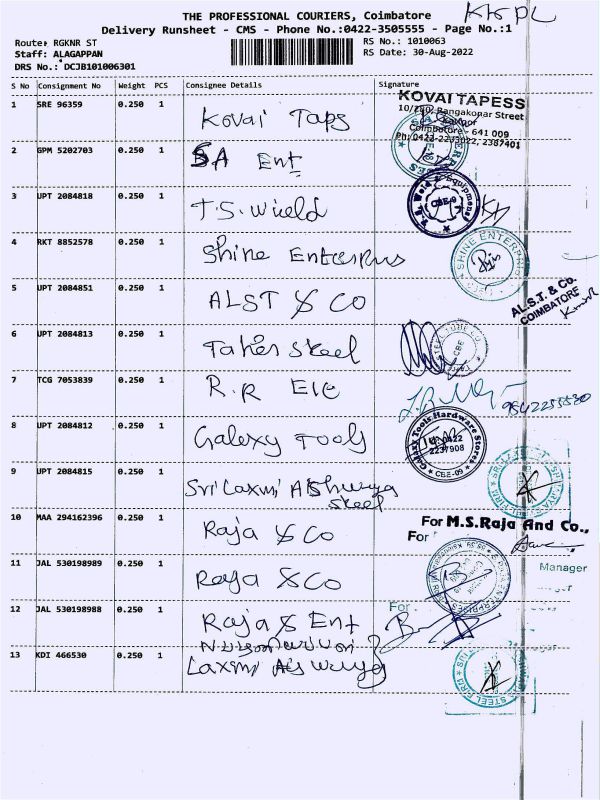 THE PROFESSIONAL COURIERS, Coimbatore
KKPL
Delivery Runsheet - CMS - Phone No.:0422-3505555 - Page No.:1
Route: RGKNR ST
RS No.: 1010063
Staff: ALAGAPPAN
RS Date: 30-Aug-2022
DRS No.: DCJB101006301
S No Consignment No Weight PCS Consignee Details Signature
1 SRE 96359 0.250 1 Kovai Taps
KOVAI TAPESS
10/280, Rangakonar Street
Kattoor
Coimbatore - 641 009
Ph: 0422-2233022, 2387401
2 GPM 5202703 0.250 1 SA Ent
3 UPT 2084818 0.250 1 T.S. Wield
CBE-9
4 RKT 8852578 0.250 1 Shine Enterprus
SHINE ENTERPRISES
5 UPT 2084851 0.250 1 ALST & CO
AL.S.T. & Co.
COIMBATORE
6 UPT 2084813 0.250 1 Taher Steel
CBE
7 TCG 7053839 0.250 1 R.R Ele
9842255530
8 UPT 2084812 0.250 1 Galexy Tools
Galaxy Tools Hardware Stores
0422
2237908
CBE-09
9 UPT 2084815 0.250 1 Sri Laxmi Aishwrya
Steel
10 MAA 294162396 0.250 1 Raja & Co
For M.S.Raja And Co.,
For
Manager
11 JAL 530198989 0.250 1 Raja & Co
12 JAL 530198988 0.250 1 Raja & Ent
For
13 KDI 466530 0.250 1
Laxmi Aiswrya
STEEL FIRM